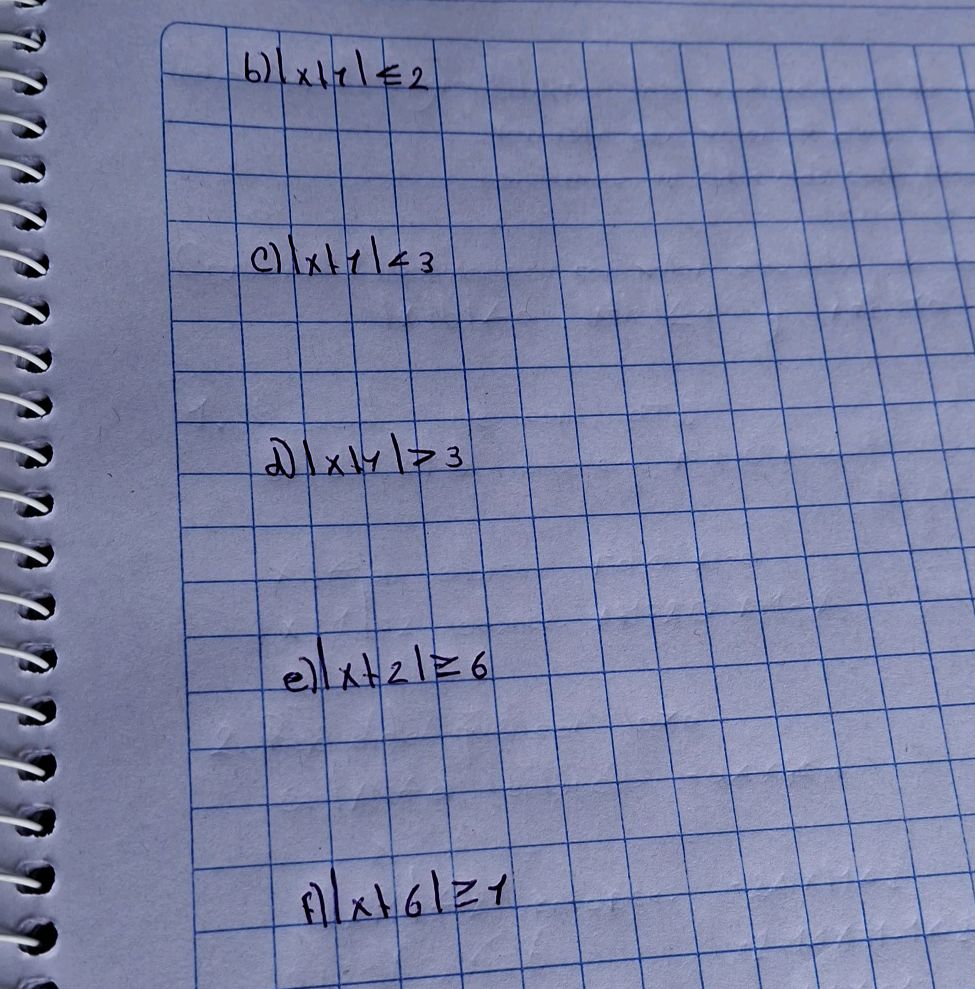 b) |x+1| ≤ 2
c) |x+1| < 3
d) |x+1| > 3
e) |x+2| ≥ 6
f) |x+6| ≥ 1